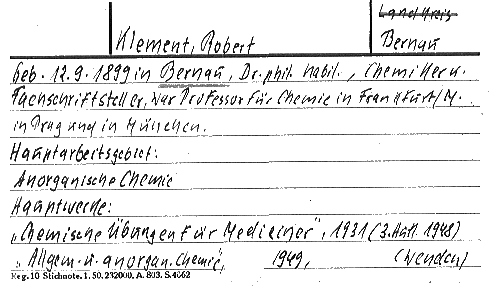 Landkreis
Klement, Robert
Bernau
Geb. 12.9.1899 in Bernau, Dr. phil. habil., Chemiker u.
Fachschriftsteller, war Professor für Chemie in Frankfurt/M.
in Prag und in München.
Hauptarbeitsgebiet:
Anorganische Chemie
Hauptwerke:
„Chemische Übungen für Mediciner", 1931 (3. Aufl. 1948)
„Allgem. u. anorgan. Chemie", 1949, (Wenden)
Reg. 10 Stichnote. 1. 50. 232000. A. 803. S. 4662